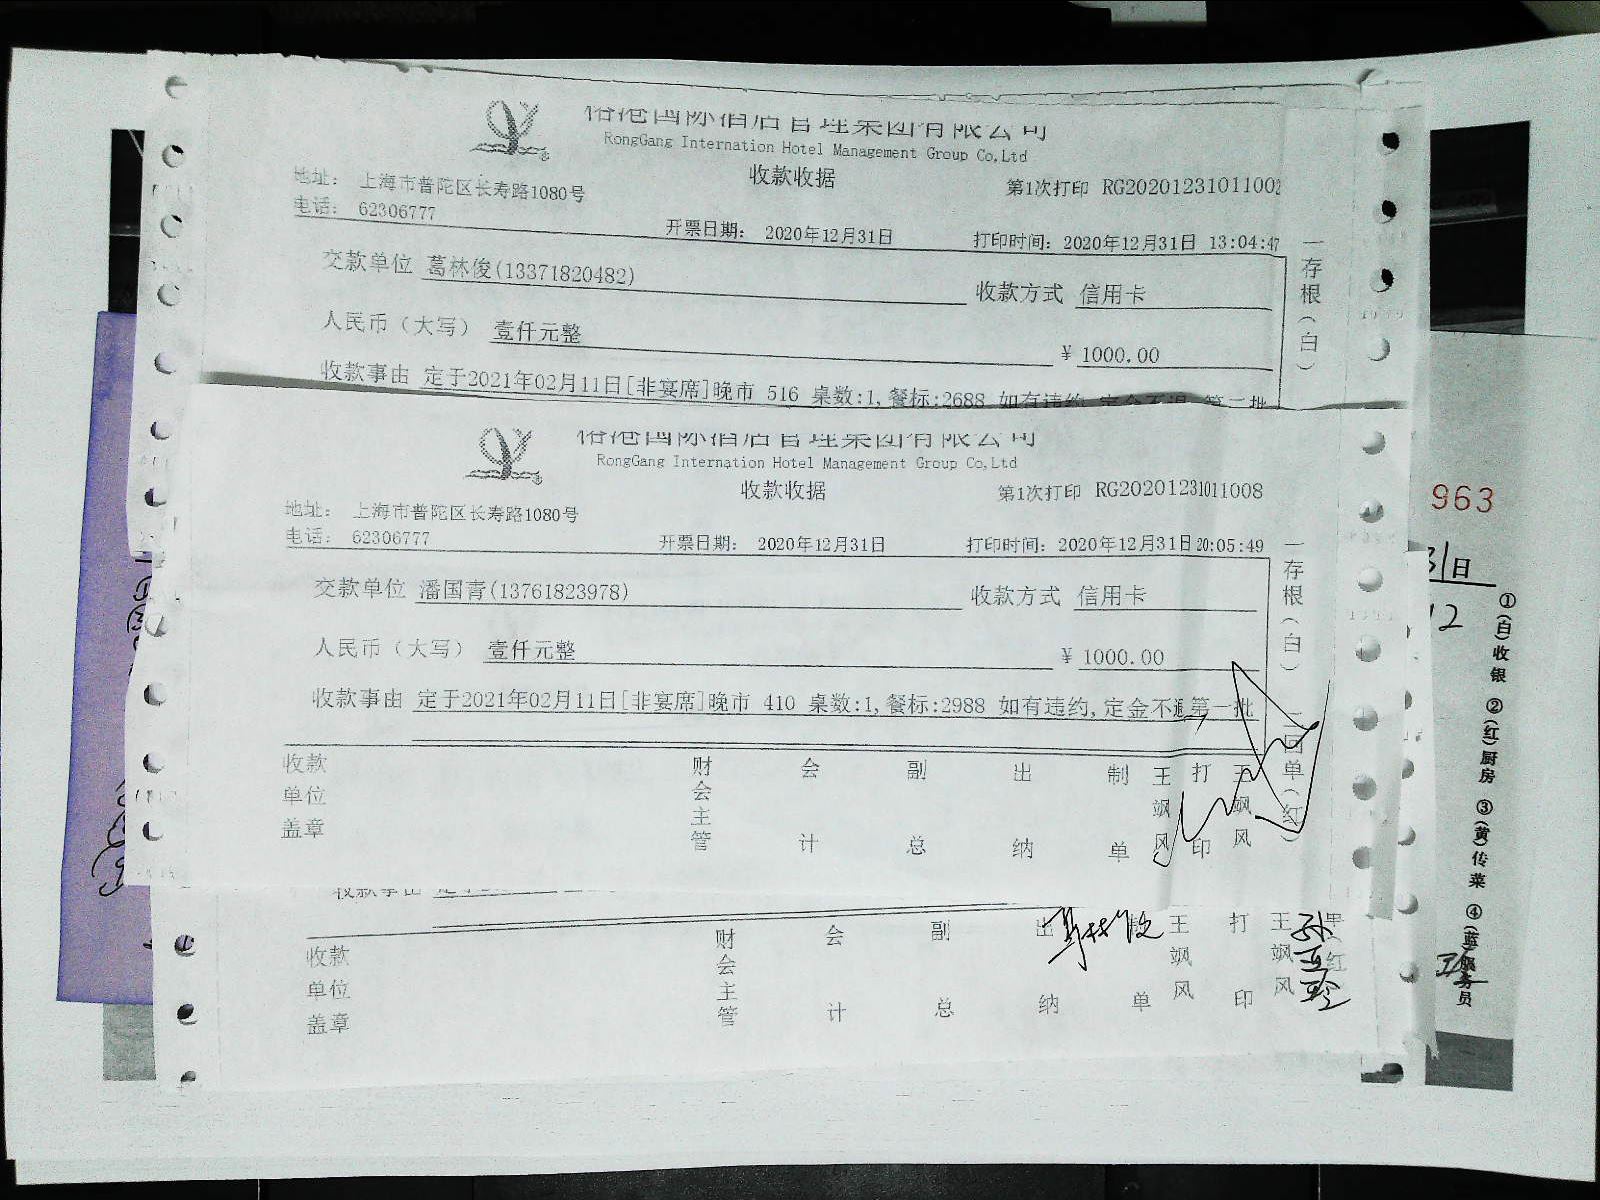 国际酒店管理集团有限公司
RongGang Internation Hotel Management Group Co,Ltd
收款收据
地址： 上海市普陀区长寿路1080号
第1次打印 RG2020123101100
电话： 62306777
开票日期： 2020年12月31日
打印时间：2020年12月31日 13:04:47
交款单位 葛林俊(13371820482)
收款方式 信用卡
人民币（大写） 壹仟元整
¥ 1000.00
收款事由 定于2021年02月11日[非宴席]晚市 516 桌数:1,餐标:2688 如有违约,定金不退 第二批
一存根（白）
国际酒店管理集团有限公司
RongGang Internation Hotel Management Group Co,Ltd
收款收据
地址： 上海市普陀区长寿路1080号
第1次打印 RG20201231011008
电话： 62306777
开票日期： 2020年12月31日
打印时间：2020年12月31日 20:05:49
交款单位 潘国青(13761823978)
收款方式 信用卡
人民币（大写） 壹仟元整
¥ 1000.00
收款事由 定于2021年02月11日[非宴席]晚市 410 桌数:1,餐标:2988 如有违约,定金不退第一批
一存根（白） 二回单（红）
收款单位盖章
财会主管
会计
副总
出纳
制单
王飒风
打印
王飒风
收款事由
收款单位盖章
财会主管
会计
副总
出纳
单
王飒风
打印
王飒风
红
963
31日
12
①（白）收银 ②（红）厨房 ③（黄）传菜 ④（蓝）服务员